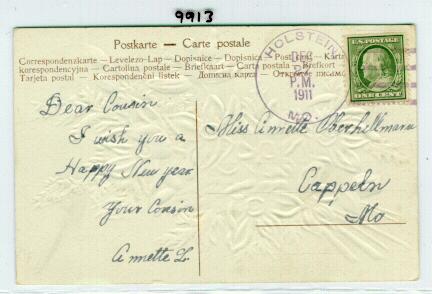 9913
Postkarte — Carte postale
Correspondenzkarte — Levelezo-Lap — Dopisnice — Dopisnica — Post Kort — Karta
korespondencyjna — Cartolina postale — Briefkaart — Carta postala — Brefkort
Tarjeta postal — Korespondenčni listek — Дописна карта — Открытое письмо
HOLSTEIN
DEC
P.M.
1911
MO.
U.S. POSTAGE
ONE CENT
Dear Cousin
I wish you a
Happy New year
Your Cousin
Annette L.
Miss Annette Oberhellmann
Cappeln
Mo